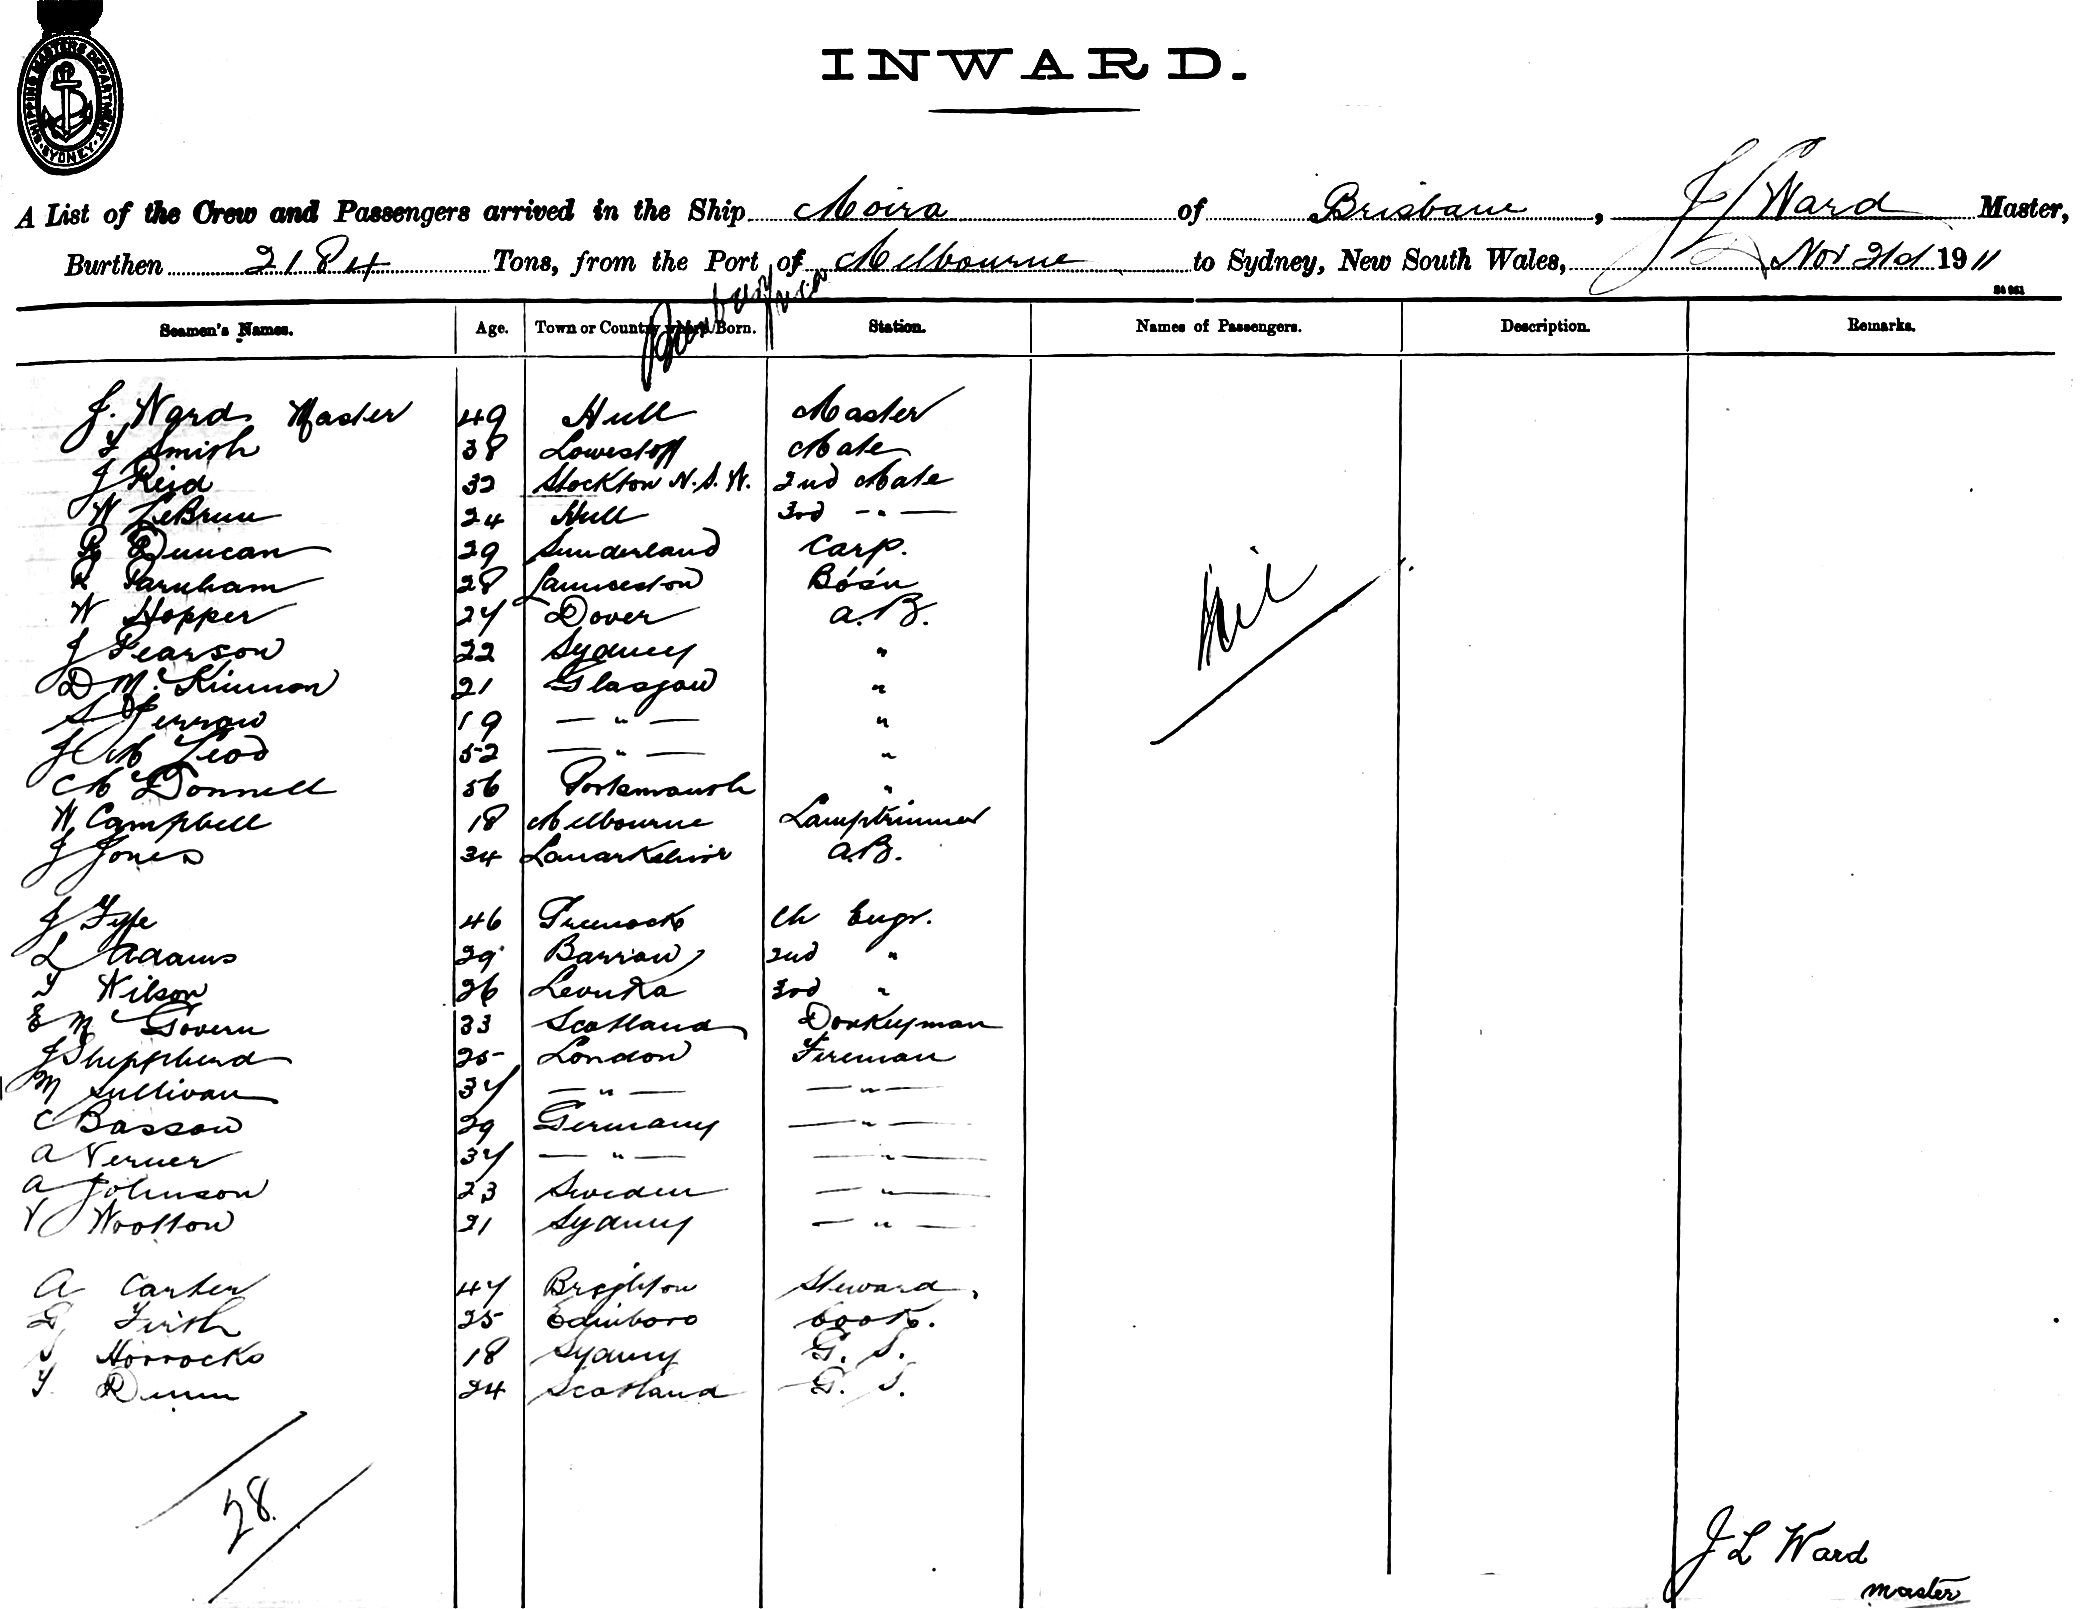 SHIPPING MASTERS DEPARTMENT SYDNEY
INWARD.
A List of the Crew and Passengers arrived in the Ship Moira of Brisbane, J L Ward Master,
Burthen 2184 Tons, from the Port of Melbourne to Sydney, New South Wales, Nov 1911
Seamen's Names. Age. Town or Country where Born. Station. Names of Passengers. Description. Remarks.
J. Ward Master 49 Hull Master
F Smith 38 Lowestoff Mate
J Reid 32 Stockton N.S.W. 2nd Mate
W LeBrun 24 Hull 3rd — " —
Duncan 29 Sunderland Carp.
R Parnham 28 Launceston Bósn
W Hopper 27 Dover A.B.
J Pearson 22 Sydney "
D McKinnon 21 Glasgow "
S 19 — " — "
J McLeod 52 — " — "
C McDonnell 56 Portsmouth "
W Campbell 18 Melbourne Lamptrimmer
J Jones 34 Lanarkshire A.B.
J Fyfe 46 Greenock Ch Engr.
L Adams 29 Barrow 2nd "
T Wilson 26 Levuka 3rd "
E McGovern 33 Scotland Donkeyman
J Shippherd 25 London Fireman
M Sullivan 37 — " — — " —
C Bassow 29 Germany — " —
A Verner 37 — " — — " —
A Johnson 23 Sweden — " —
V Wootton 21 Sydney — " —
A Carter 47 Brighton Steward.
G Firth 25 Edinboro Cook.
Horrocks 18 Sydney G. S.
T. Dunn 24 Scotland G. S.
Nil
28
J L Ward
Master